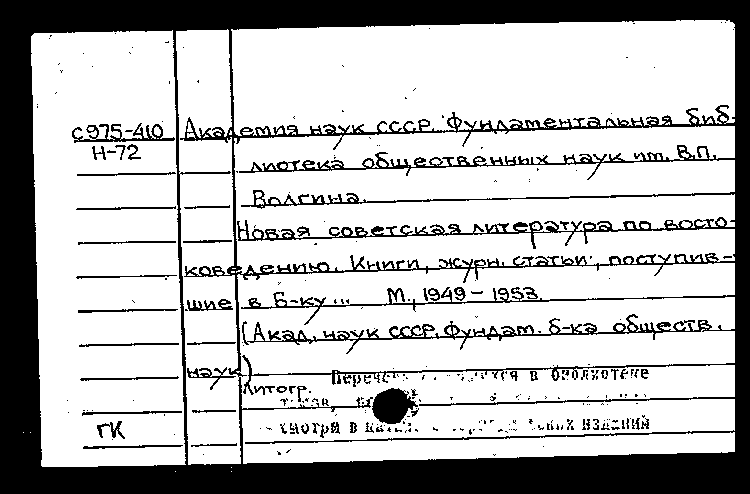 с975-410 Академия наук СССР. Фундаментальная биб-
Н-72
лиотека общественных наук им. В.П.
Волгина.
Новая советская литература по восто-
коведению. Книги, журн. статьи, поступив-
шие в б-ку... М., 1949-1953.
(Акад. наук СССР. Фундам. б-ка обществ.
наук)
Литогр. в библиотеке
смотри в изданий
ГК